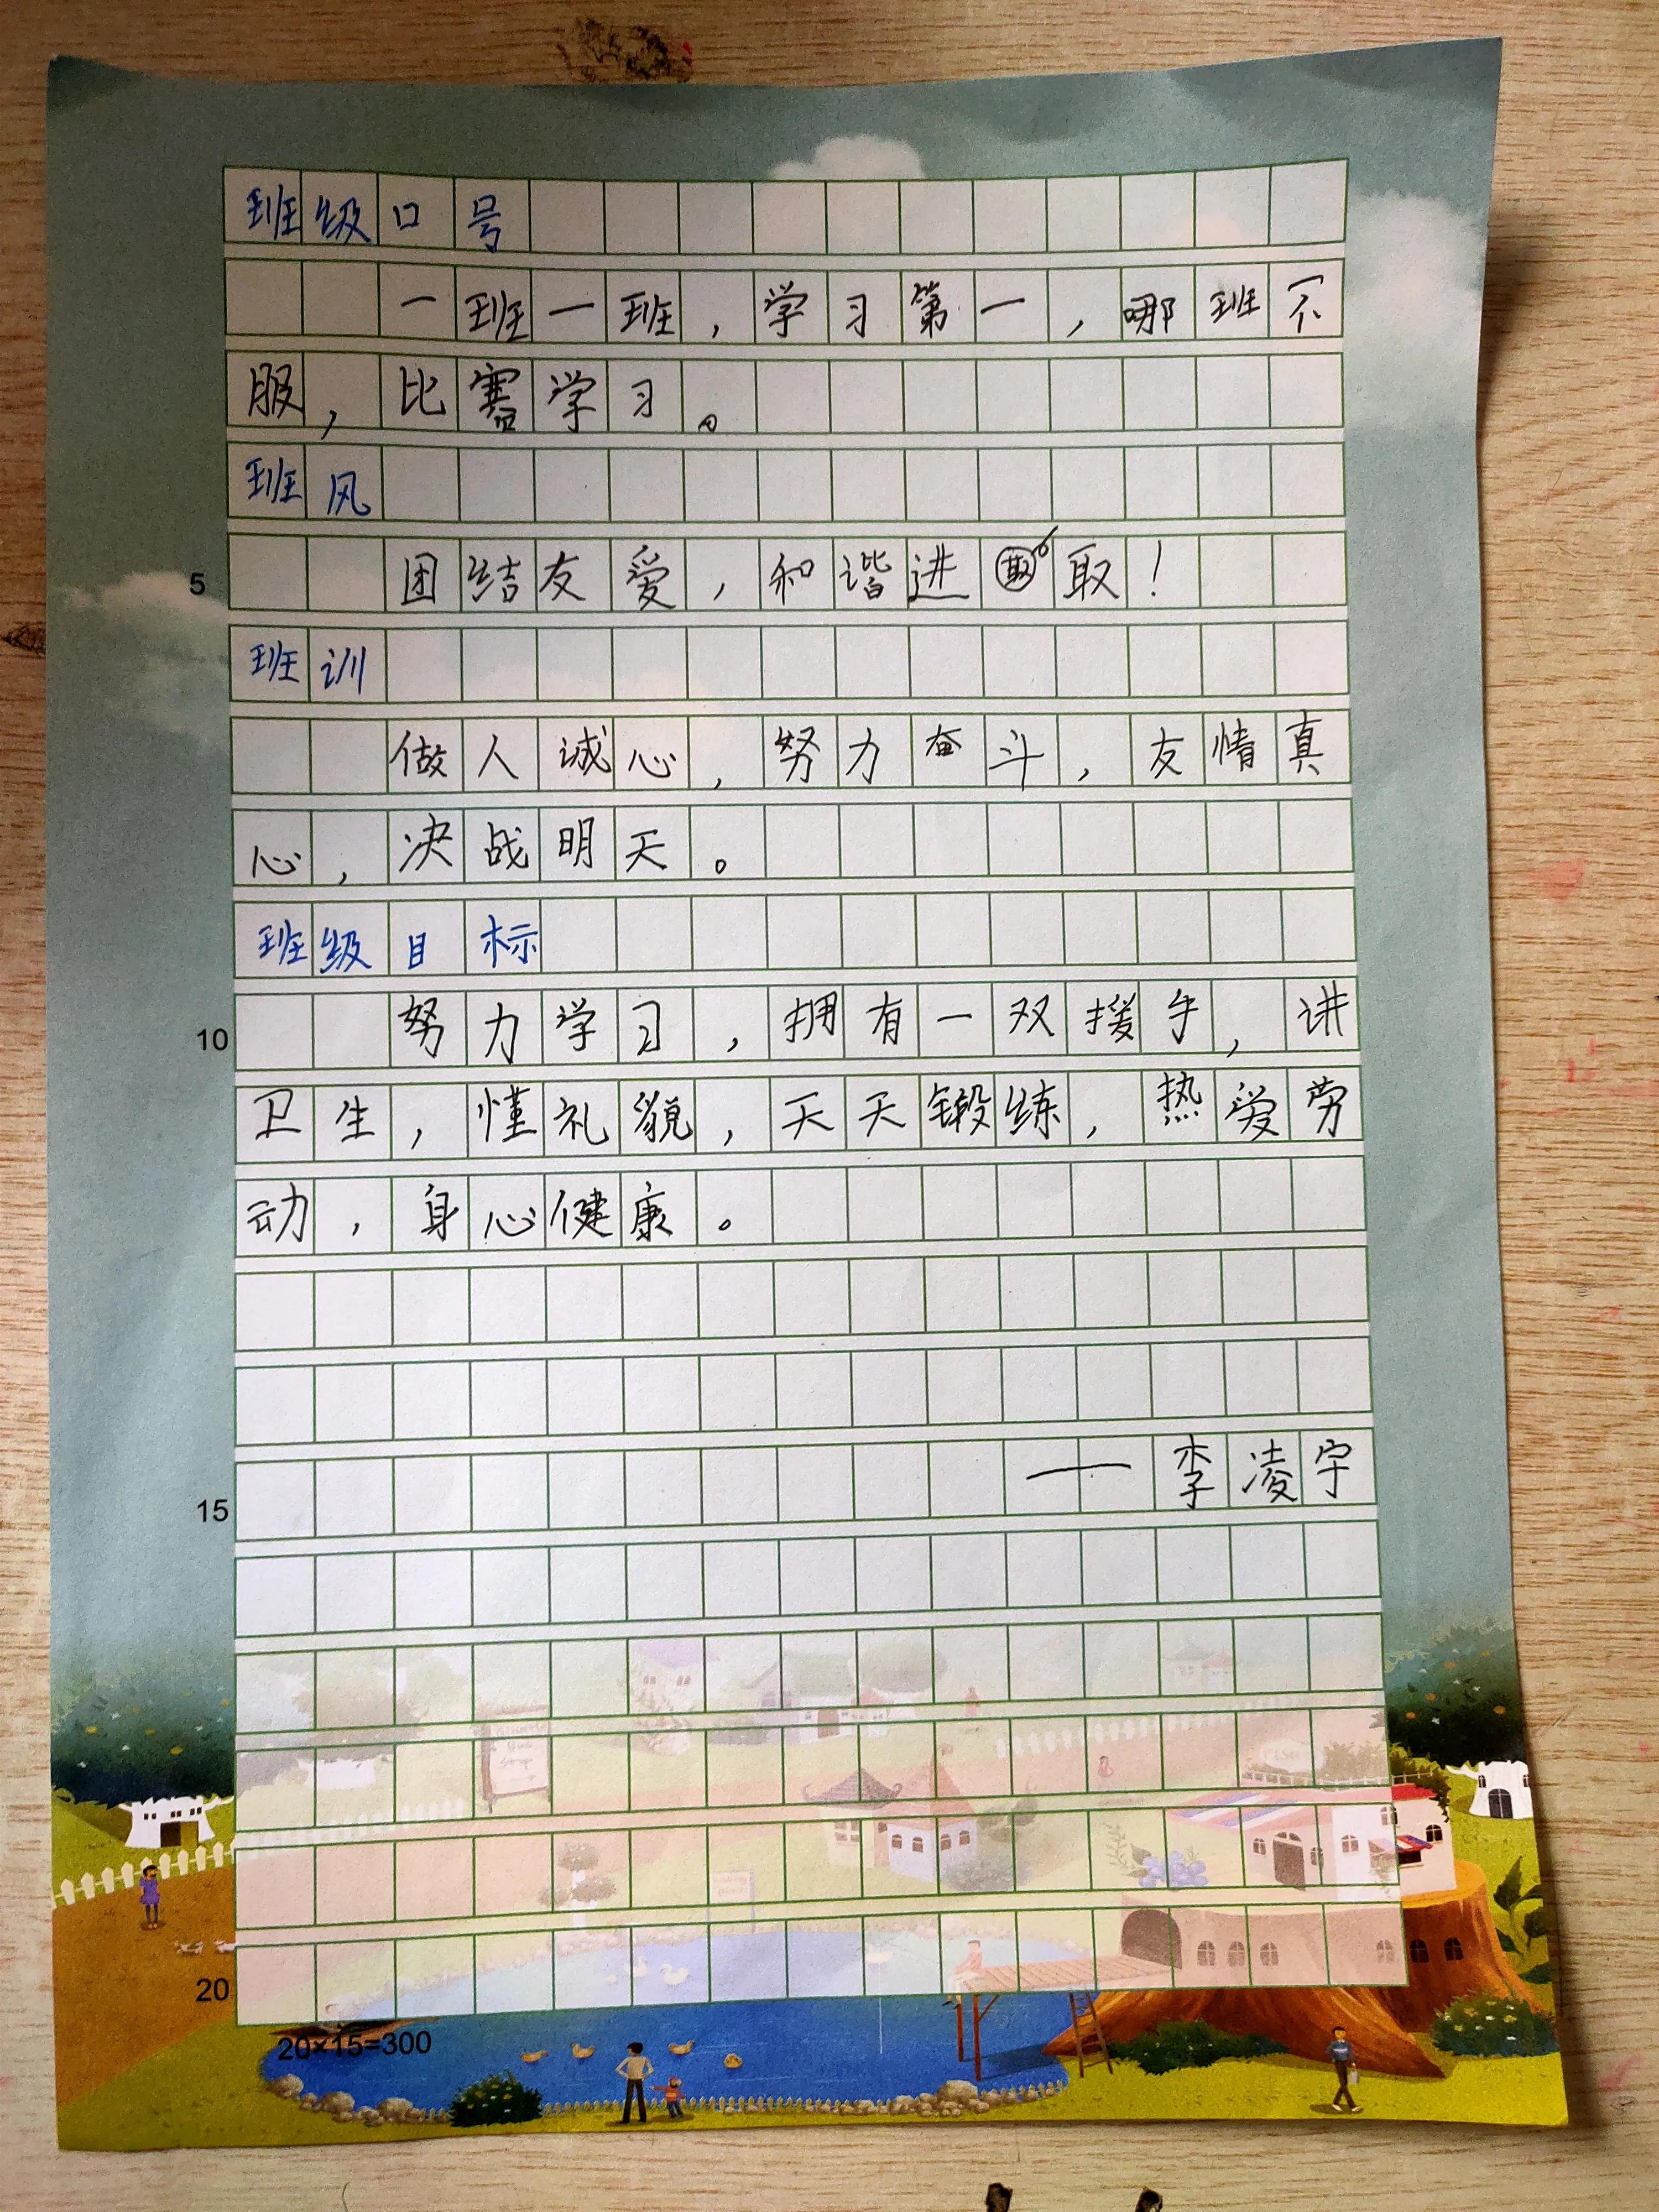 班级口号
一班一班，学习第一，哪班不
服，比赛学习。
班风
5
团结友爱，和谐进取！
班训
做人诚心，努力奋斗，友情真
心，决战明天。
班级目标
10
努力学习，拥有一双援手，讲
卫生，懂礼貌，天天锻练，热爱劳
动，身心健康。
15
——李凌宇
20
20×15=300